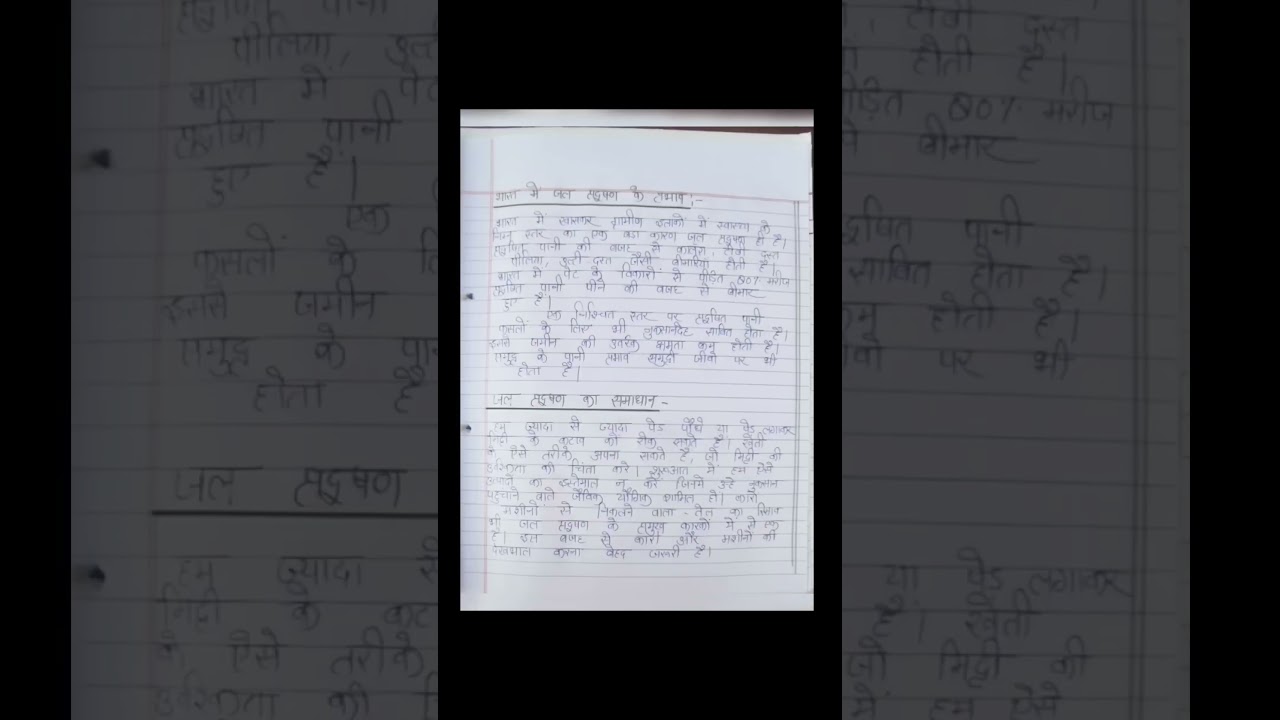 भारत में जल प्रदुषण के प्रभाव :-
भारत में खासकर ग्रामीण इलाकों में स्वास्थ्य के
निम्न स्तर का एक बडा कारण जल प्रदुषण ही है।
प्रदुषित पानी की वजह से कालरा, टीबी दस्त
पीलिया, उल्टी दस्त जैसी बीमारियां होती है।
भारत में पेट के विकारों से पीड़ित 80% मरीज
प्रदुषित पानी पीने की वजह से बीमार
हुए है।
एक निश्चित स्तर पर प्रदुषित पानी
फसलों के लिए भी नुकसानदेह साबित होता है।
इनसे जमीन की उर्वरक क्षमता कम होती है।
समुद्र के पानी प्रभाव समुद्री जीवों पर भी
होता है।
जल प्रदुषण का समाधान -
हम ज़्यादा से ज़्यादा पेड पौधे या पेड़ लगाकर
मिट्टी के कटाव को रोक सकते है। खेती
के ऐसे तरीके अपना सकते है, जो मिट्टी की
उर्वरकता की चिंता करे। शुरुआत में हम ऐसे
उत्पादों का इस्तेमाल न करें जिनमें उन्हे नुकसान
पहुंचाने वाले जैविक यौगिक शामिल हो। कारों
मशीनों से निकलने वाला - तेल का रिसाव
भी जल प्रदुषण के प्रमुख कारकों में से एक
है। इस वजह से कारों और मशीनों की
देखभाल करना बेहद जरूरी है।